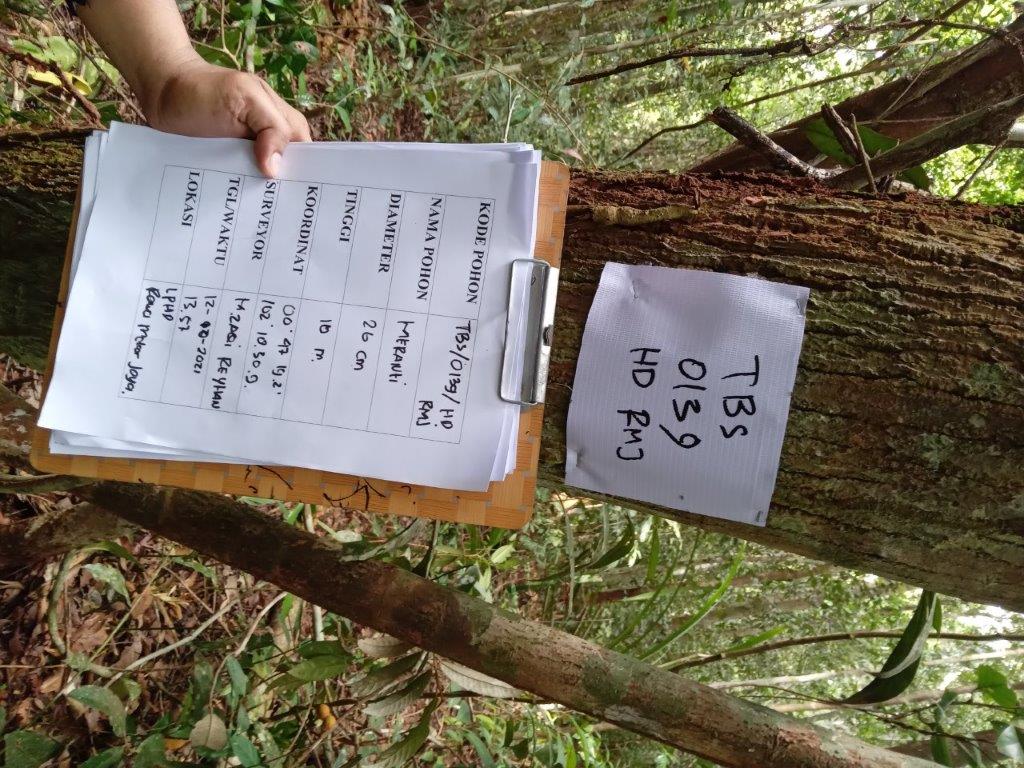 TBS
0139
HD RMJ
KODE POHON TBS/0139/HD
RMJ
NAMA POHON MERANTI
DIAMETER 26 cm
TINGGI 10 m.
KOORDINAT 00° 47' 19.2"
102° 10.30.9.
SURVEYOR M.ZAQI REYHAN
TGL/WAKTU 12-10-2021
13.57
LOKASI LPHD
Rawa Mekar Jaya.